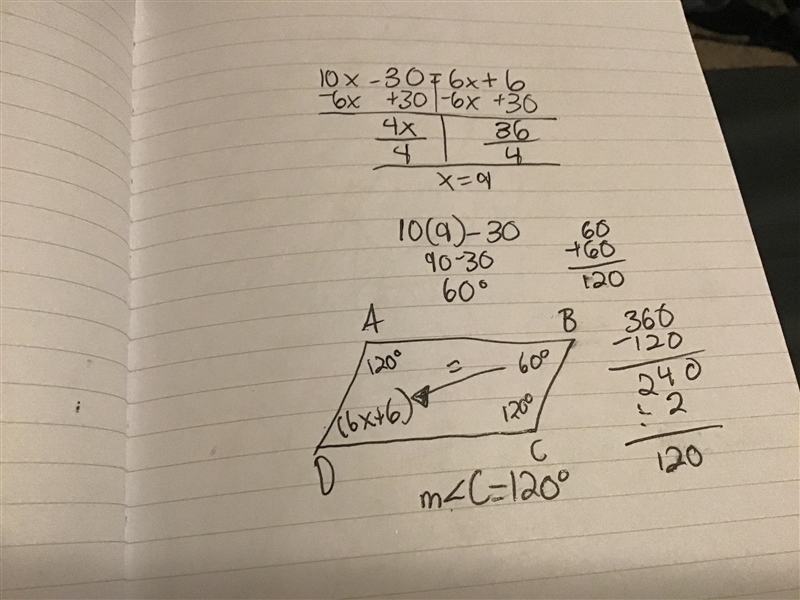 10x - 30 = 6x + 6
-6x +30 -6x +30
4x 36
4 4
x = 9
10(9) - 30
90 - 30
60°
60
+60
120
A B
120° = 60°
(6x+6) 120°
D C
m∠C = 120°
360
-120
240
÷ 2
120